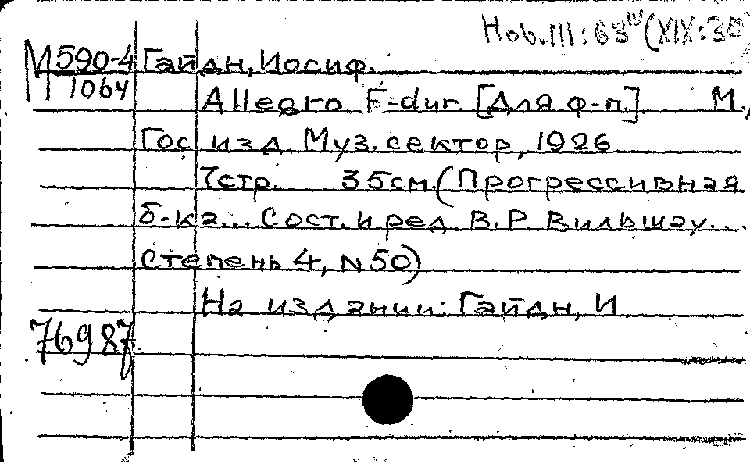 Hob.III:63 (XIX:30
М590-4 Гайдн, Иосиф.
М 1064
Allegro F-dur [Для ф-п.] М.,
Гос изд Муз. сектор, 1926
7стр. 35см. (Прогрессивная
б-ка... Сост. и ред. В.Р Вильшау...
Степень 4, N50)
На издании: Гайдн, И
76987